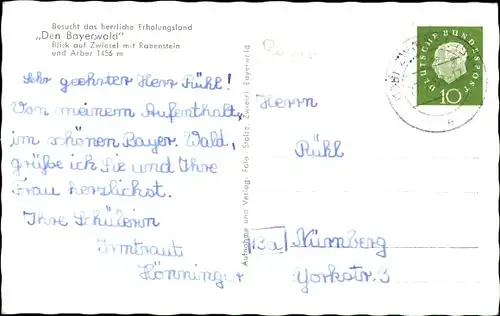 Besucht das herrliche Erholungsland
„Den Bayerwald"
Blick auf Zwiesel mit Rabenstein
und Arber 1456 m
Sehr geehrter Herr Rühl!
Von meinem Aufenthalt
im schönen Bayer. Wald,
grüße ich Sie und Ihre
Frau herzlichst.
Ihre Schülerin
Irmtraut
Hönninger
Aufnahme und Verlag: Foto Stolze, Zwiesel Bayerwald
DEUTSCHE BUNDESPOST
10
Herrn
Rühl
13a Nürnberg
Yorkstr. 3